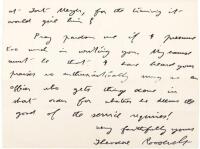 at Fort Meyer, for the training it
would give him?
Pray pardon me if I presume
too much in writing you. My excuse
must be that I have heard your
praises so enthusiastically sung as an
officer who gets things done in
short order for whatever he deems the
good of the service requires!
Very faithfully yours
Theodore Roosevelt